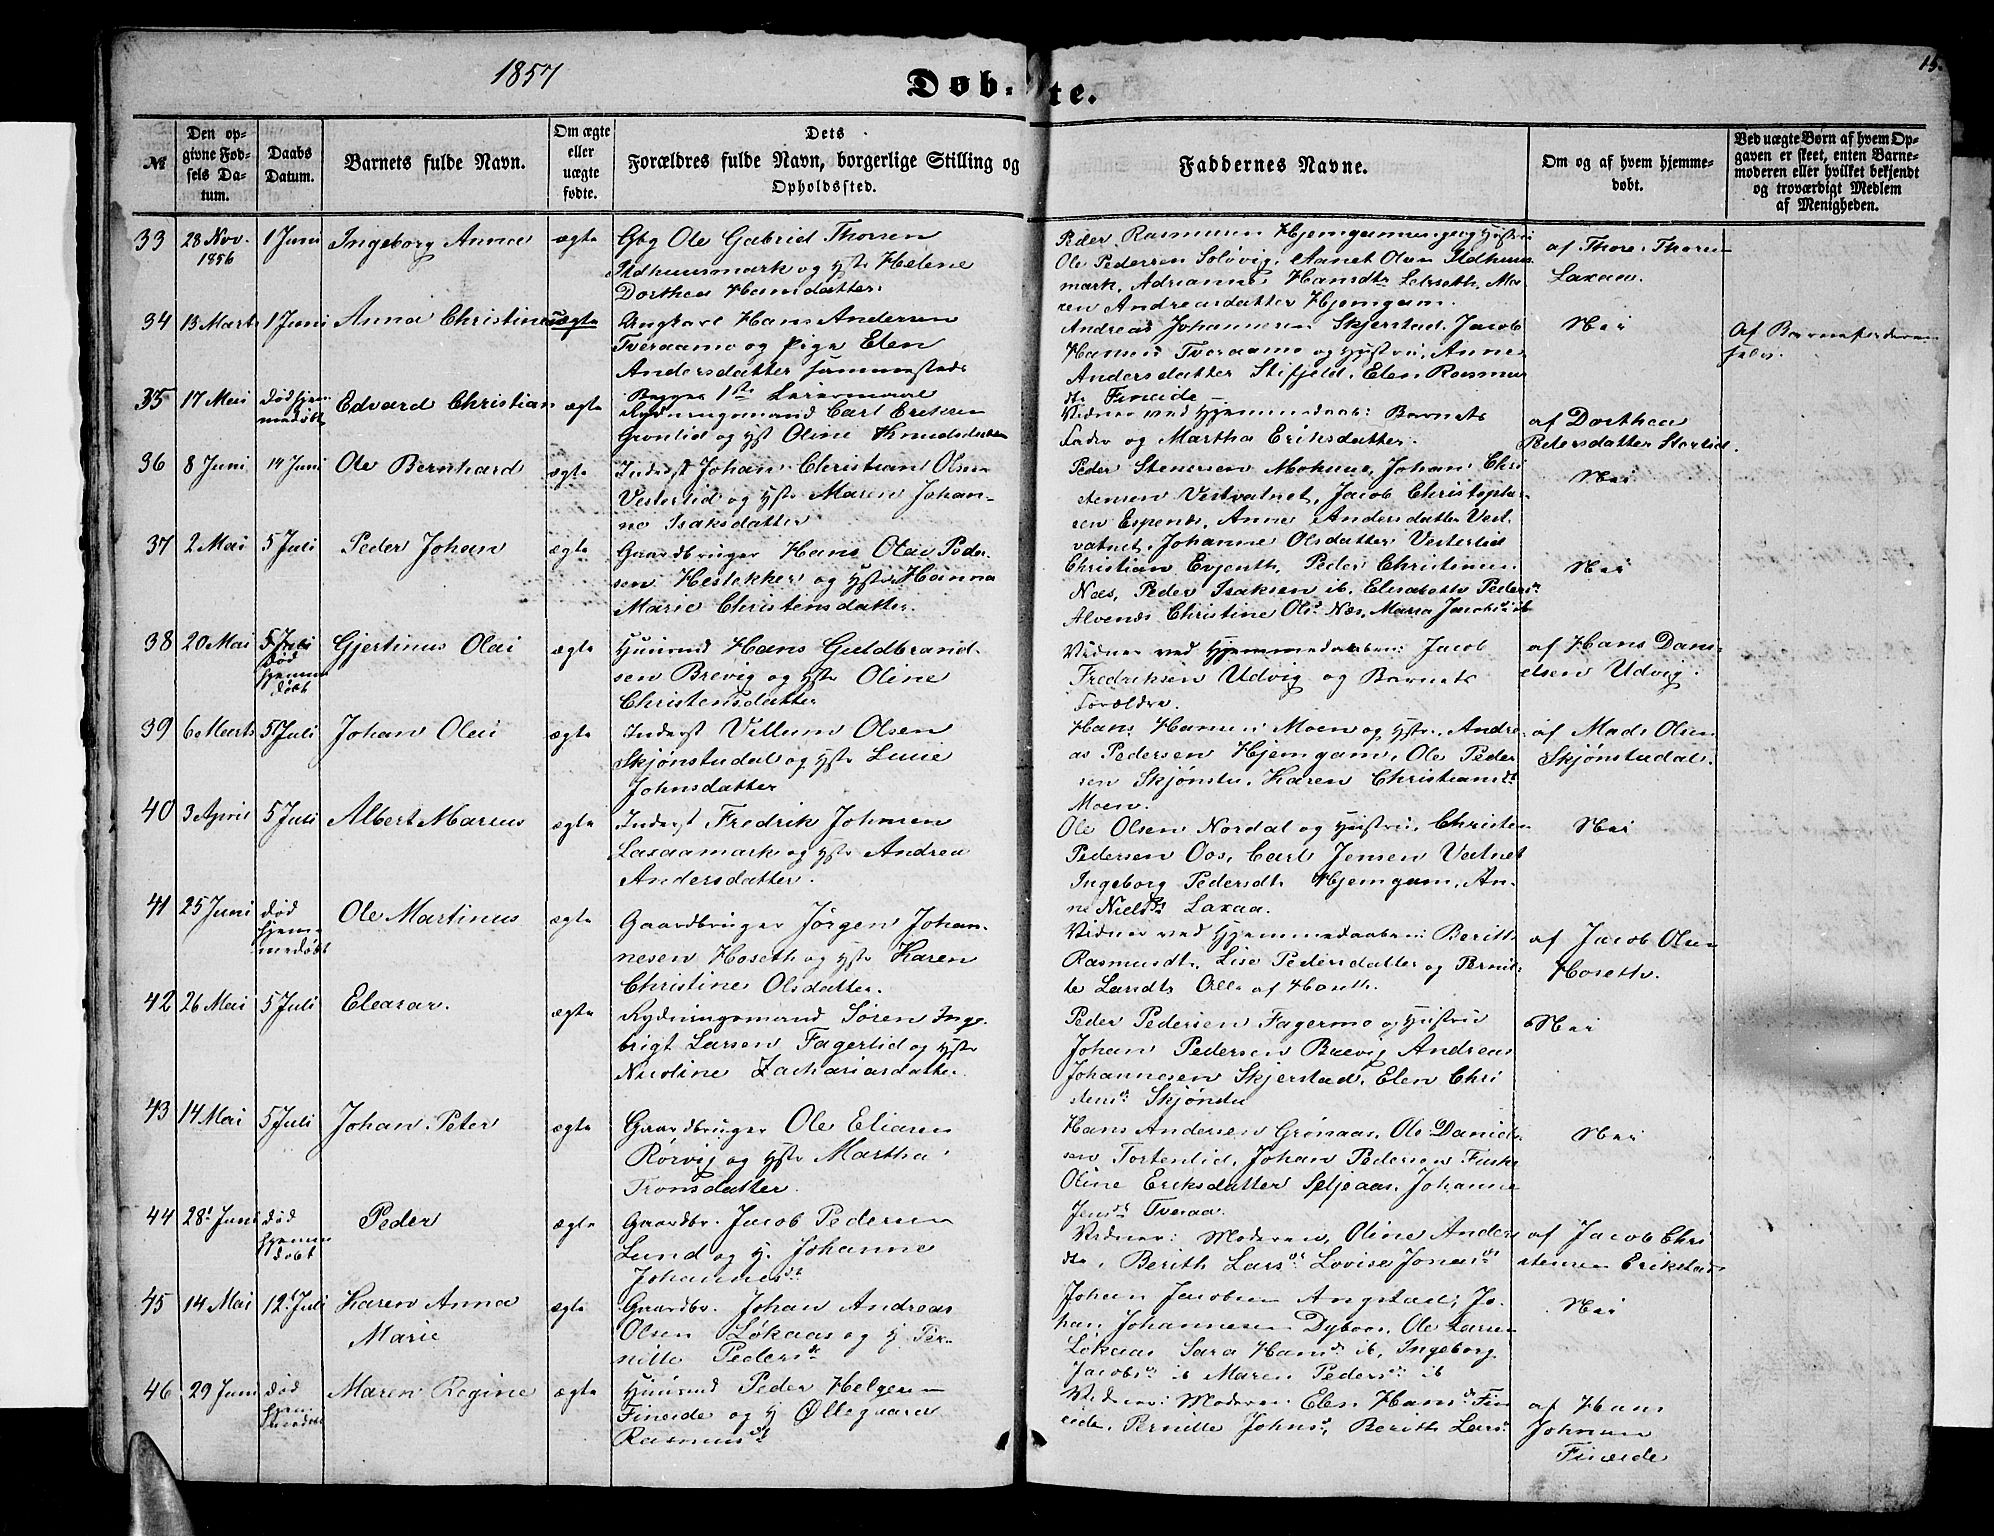 1857
Døb-te.
15.
№
Den op-
givne Fød-
sels Da-
tum.
Daabs
Datum.
Barnets fulde Navn.
Om ægte
eller
uægte
fødte.
Dets
Forældres fulde Navn, borgerlige Stilling og
Opholdssted.
Faddernes Navne.
Om og af hvem hjemme-
døbt.
Ved uægte Børn af hvem Op-
gaven er skeet, enten Barne-
moderen eller hvilket bekjendt
og troværdigt Medlem
af Menigheden.
33
28 Nov.
1856
1 Juni
Ingeborg Anna
ægte
Gbg Ole Gabriel Thorsen
Ildhuusmark og Hst Helene
Dorthea Hansdatter.
Peder Rasmusen Hjemgam og Hustru
Ole Pedersen Solvig, Olsen Ildhuus
mark, Adrianne Hansdtr Leirseth, Ma-
ren Andreasdatter Hjemgam.
af Thore Thorsen
Laxaa.
34
13 Marts
1 Juni
Anna Christine
uægte
Ungkarl Hans Andersen
Tveraamo og Pige Elen
Andersdatter sammesteds
Begges 1ste Leiermaal
Andreas Johannesen Skjerstad, Jacob
Hansen Tveraamo og Hustru, Anne
Andersdatter Stifjeld, Elen Rasmus
dtr Fineide
Nei
Af Barnefaderen
selv.
35
17 Mai
død hjem
medøbt
Edvard Christian
ægte
Rydningsmand Carl Eriksen
Grønlid og Hst Oline Knudsdatter
Vidner ved Hjemmedaab: Barnets
Fader og Martha Eriksdatter.
af Dorthea
Petersdatter Storlid.
36
8 Juni
14 Juni
Ole Bernhard
ægte
Inderst Johan Christian Olsen
Vesterlid og Hst Maren Johan-
ne Isaksdatter
Peder Stenersen Mohuus, Johan Chri
stensen Vestvatnet, Jacob Christopher
sen Espenes, Anne Andersdatter Vest
vatnet, Johanne Olsdatter Vesterlid
Nei
37
2 Mai
5 Juli
Peder Johan
ægte
Gaardbruger Hans Olai Peder-
sen Hestekker og Hstr Hanna
Marie Christensdatter.
Christian Evjenth, Peder Christensen
Næs, Peder Isaksen ib, Elisabeth Peders
Alvenes Christine Ols Næs, Maria Jacobs ib
Nei
38
20 Mai
5 Juli
død
hjemme
døbt
Gjertinus Olai
ægte
Huusmd Hans Guldbrand-
sen Brevig og Hst Oline
Christensdatter
Vidner ved Hjemmedaaben: Jacob
Fredriksen Udvig og Barnets
Forældre.
af Hans Dani
elsen Udvig.
39
6 Marts
5 Juli
Johan Olai
ægte
Inderst Villum Olsen
Skjønstudal og Hst
Johnsdatter
Hans Hansen Moen og Hstr, Andre
as Pedersen Hjemgam, Ole Peder
sen Skjønstu, Karen Christiansdt
Moen.
af Mads Olsen
Skjønstudal.
40
3 April
5 Juli
Albert Marius
ægte
Inderst Fredrik Johnsen
Laxaamark og Hst Andrea
Andersdatter.
Ole Olsen Nordal og Hustru, Christen
Pedersen Oos, Carl Jensen Vatnet
Ingeborg Pedersdt Hjemgam, An-
ne Nielsdt Laxaa.
Nei
41
25 Juni
død
hjem
medøbt
Ole Martinus
ægte
Gaardbruger Jørgen Johan-
nesen Hoseth og Hst Karen
Christine Olsdatter.
Vidner ved Hjemmedaaben: Berith
Rasmusdt, Lise Pedersdatter og Pernil-
le Larsdtr Alle af Hoseth.
af Jacob Olsen
Hoseth.
42
26 Mai
5 Juli
Eleazar.
ægte
Rydningsmand Søren Inge-
brigt Larsen Fagerlid og Hst
Nicoline Zachariasdatter
Peder Pedersen Fagermo og Hustru
Johan Pedersen Brevig Andreas
Johannesen Skjerstad, Elen Chri
stens Skjønstu
Nei
43
14 Mai
5 Juli
Johan Peter
ægte
Gaardbruger Ole Eliasen
Rørvig og Hst Martha
Tronsdatter.
Hans Andersen Grønaas, Ole Daniel-
sen Tortenlid, Johan Pedersen Fuske
Oline Eriksdatter Seljeaas, Johanne
Jensdt Tveraa.
Nei
44
28 Juni
død
hjemme
døbt
Peder
ægte
Gaardbr. Jacob Pedersen
Lund og H. Johanne
Johannesdt
Vidner: Moderen, Oline Anders
dtr, Berith Larsdt Lovise Jonasdt
af Jacob Chri
stensen Erikstad
45
14 Mai
12 Juli
Karen Anna
Marie
ægte
Gaardbr. Johan Andreas
Olsen Løkaas og H Per-
nille Pedersdt
Johan Jacobsen Angstad, Jo-
han Johannesen Dybaas, Ole Larsen
Løkaas Sara Hansdt ib, Ingeborg
Jacobsdt ib Maren Pedersdt ib
Nei
46
29 Juni
død
hjem
Maren Regine
ægte
Huusmd Peder Helgesen
Fineide og H Øllegaard
Rasmusdt
Vidner: Moderen Elen Hansdt Fin
eide, Pernille Johnsd, Berith Lars
af Hans
Johnsen
Fineide